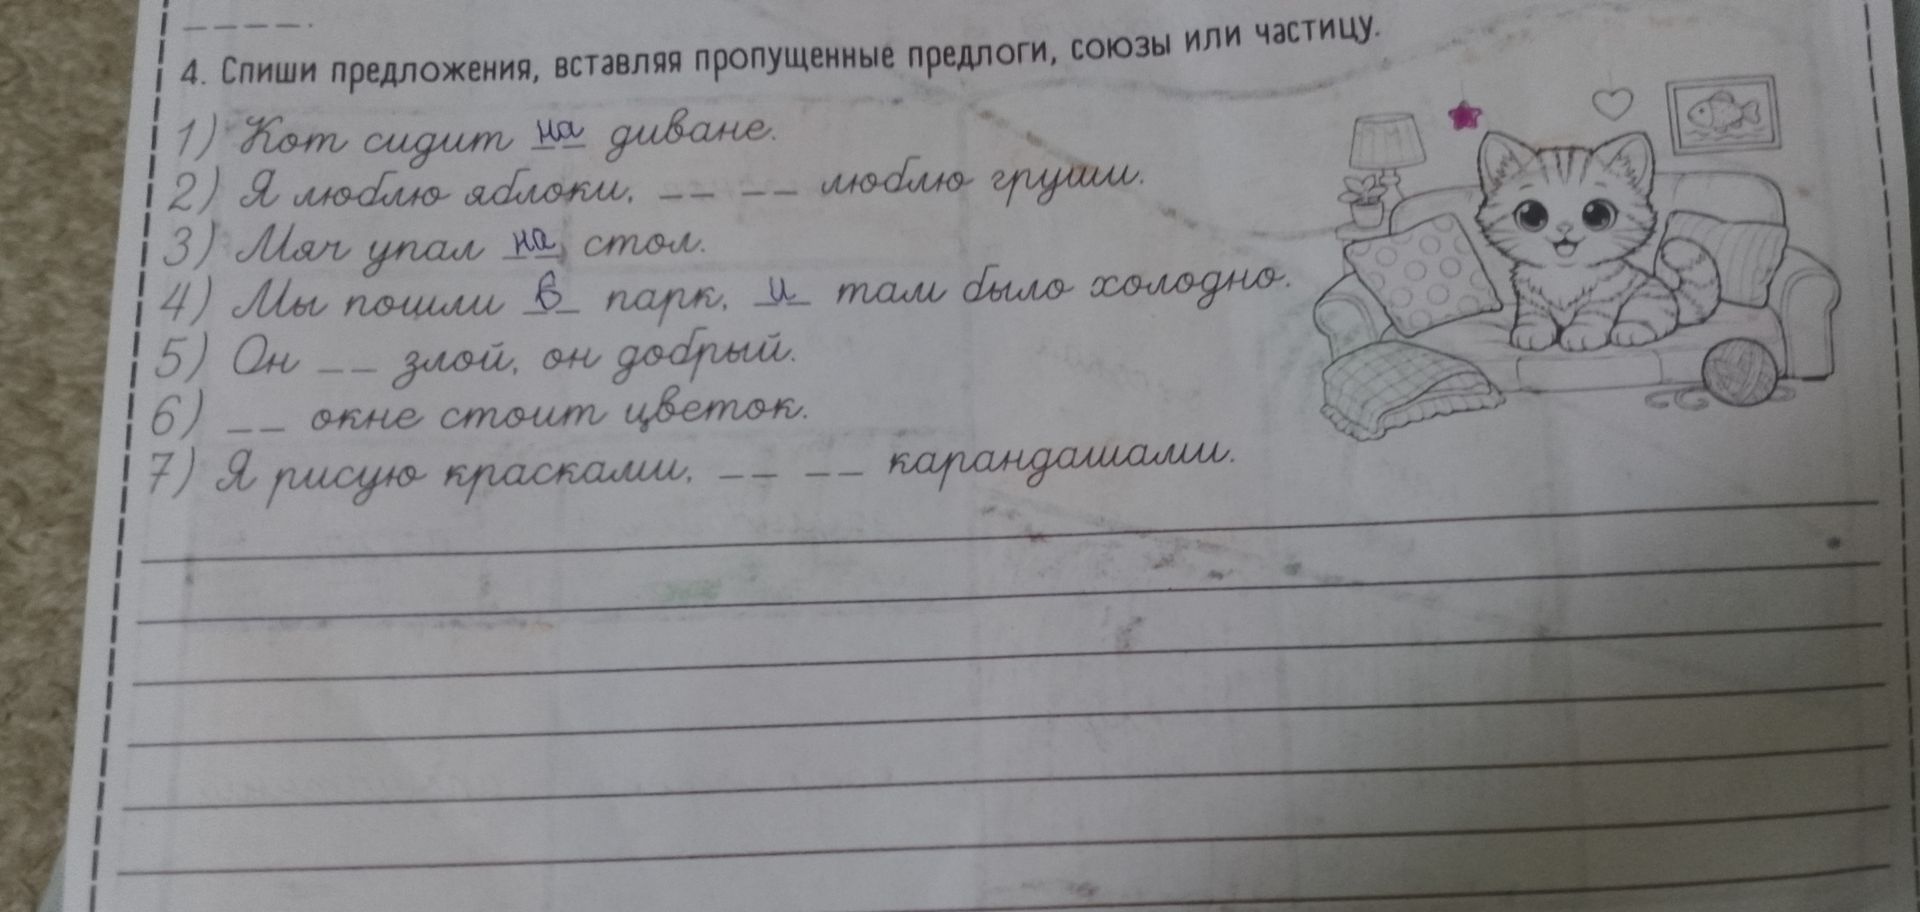 4. Спиши предложения, вставляя пропущенные предлоги, союзы или частицу.
1) Кот сидит на диване.
2) Я люблю яблоки, __ __ люблю груши.
3) Мяч упал на стол.
4) Мы пошли в парк, и там было холодно.
5) Он __ злой, он добрый.
6) __ окне стоит цветок.
7) Я рисую красками, __ __ карандашами.